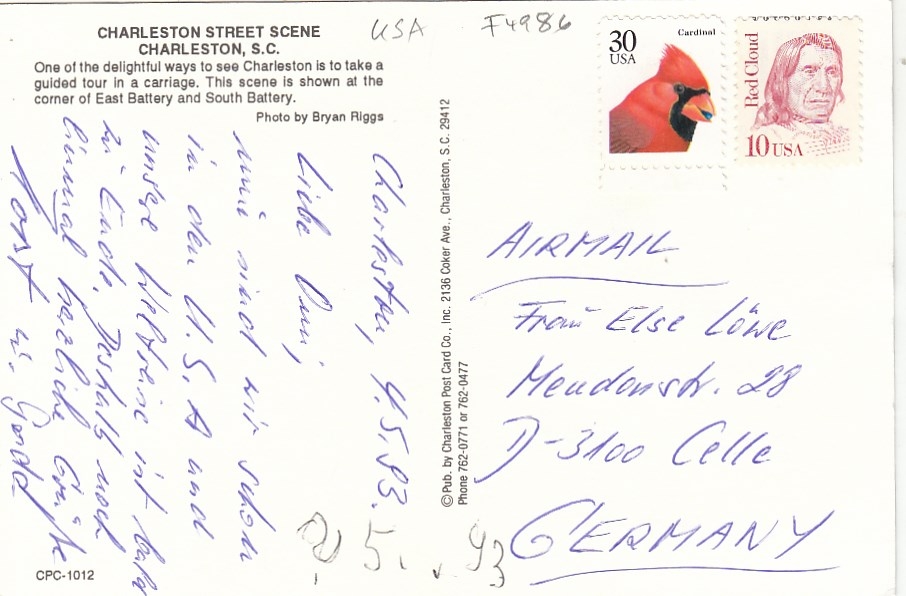 CHARLESTON STREET SCENE
CHARLESTON, S.C.
One of the delightful ways to see Charleston is to take a
guided tour in a carriage. This scene is shown at the
corner of East Battery and South Battery.
Photo by Bryan Riggs
USA F4986
30
USA
Cardinal
Red Cloud
10 USA
Charleston, 4.5.93.
Liebe Omi,
nun sind wir schon
in den U.S.A und
unsere Weltreise ist bald
zu Ende. Deshalb noch
einmal herzliche Grüße
Horst u. Gerda
©Pub. by Charleston Post Card Co., Inc. 2136 Coker Ave., Charleston, S.C. 29412
Phone 762-0771 or 762-0477
AIRMAIL
Frau Else Löwe
Meudonstr. 28
D-3100 Celle
GERMANY
5. . 93
CPC-1012